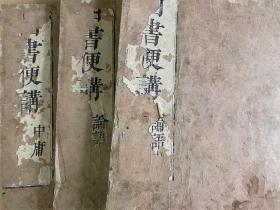 書便講
論語
書便講
論語
書便講
中庸